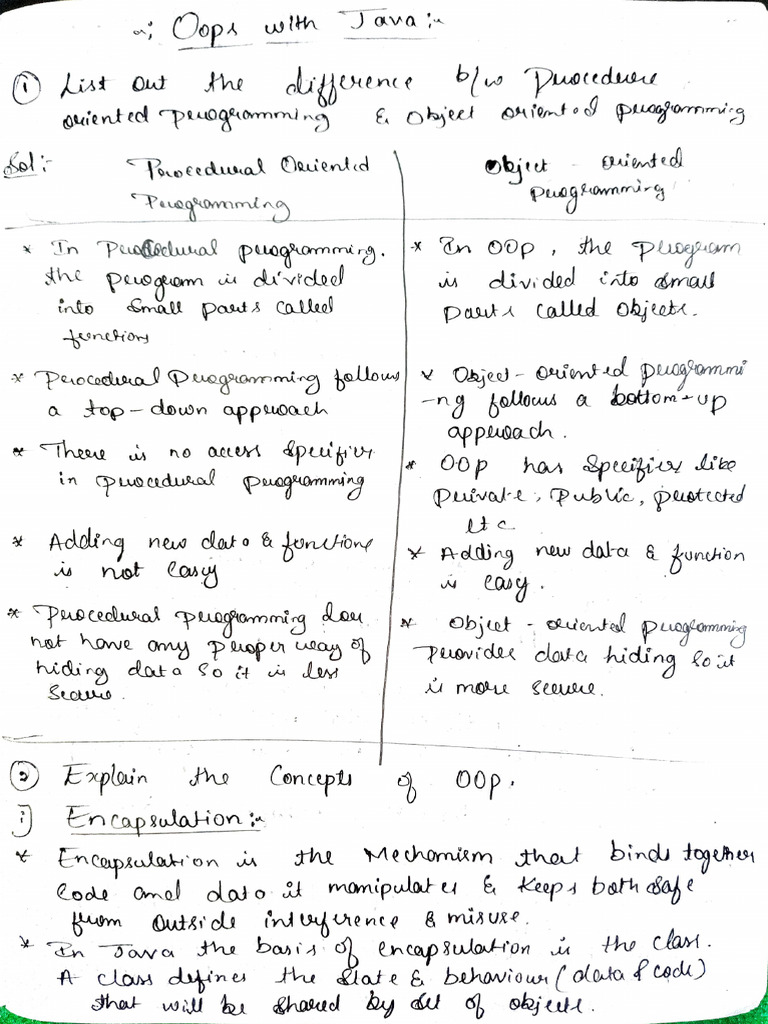 ~: Oops with Java:~
① List out the difference b/w Procedure
oriented Programming & Object oriented programming
Sol:- Procedural Oriented
Programming
* In Procedural programming.
the program is divided
into small parts called
functions
* Procedural Programming follows
a top-down approach
* There is no access specifier
in procedural programming
* Adding new data & functions
is not easy
* Procedural programming does
not have any proper way of
hiding data so it is less
secure.
Object - oriented
programming
* In OOP, the program
is divided into small
parts called objects.
* Object-oriented programmi
-ng follows a bottom-up
approach.
* OOP has specifier like
Private, Public, protected
etc
* Adding new data & function
is easy.
* Object - oriented programming
Provides data hiding so it
is more secure.
② Explain the Concepts of OOP.
i) Encapsulation:~
* Encapsulation is the Mechanism that binds together
code and data it manipulates & keeps both safe
from outside interference & misuse.
* In Java the basis of encapsulation is the class.
A class defines the state & behaviour (data & code)
that will be shared by set of objects.